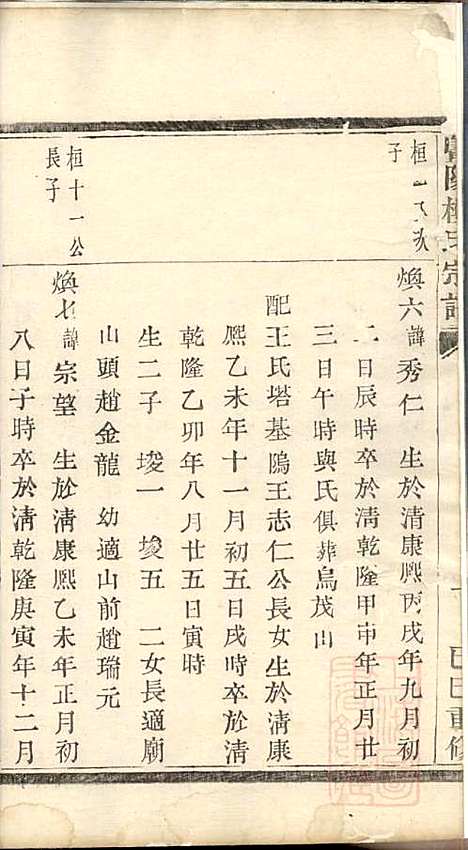 暨陽楼氏宗譜
己巳重修
桓十一公次
子
煥六諱秀仁 生於清康熙丙戌年九月初
二日辰時卒於清乾隆甲申年正月廿
三日午時與氏俱葬烏茂山
配王氏塔基隖王志仁公長女生於清康
熙乙未年十一月初五日戌時卒於清
乾隆乙卯年八月廿五日寅時
生二子 埈一 埈五 二女長適廟
山頭趙金龍 幼適山前趙瑞元
桓十一公
長子
煥七諱宗望 生於清康熙乙未年正月初
八日子時卒於清乾隆庚寅年十二月